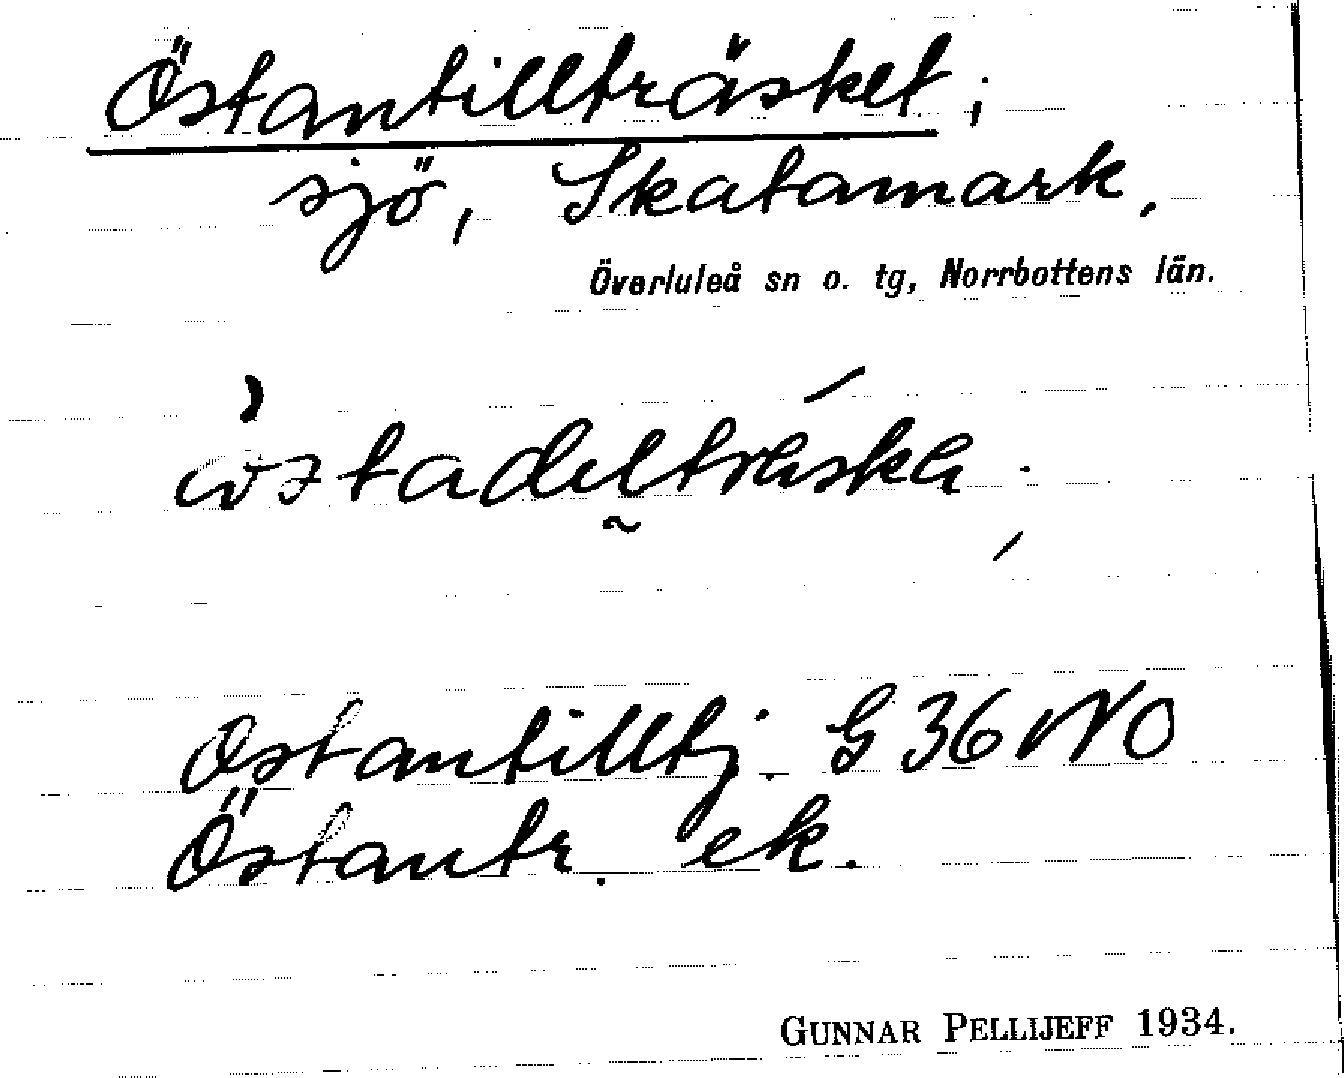 Östantillträsket;
sjö, Skatamark,
Överluleå sn o. tg, Norrbottens län.
Östantilltj. G 36 NO
Östantr. ek.
GUNNAR PELLIJEFF 1934.